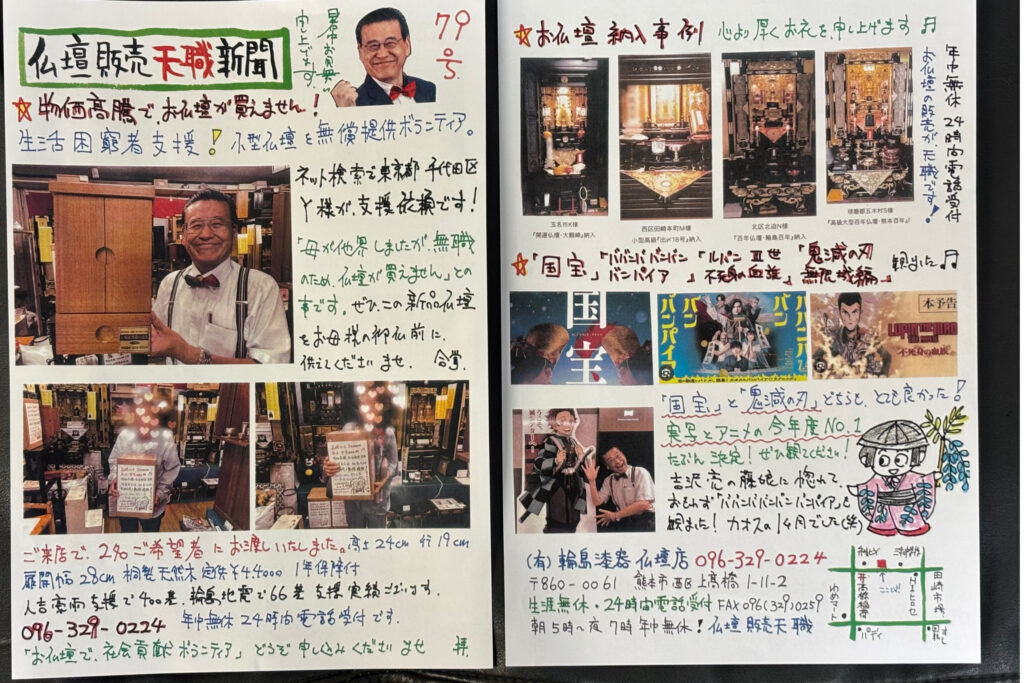 仏壇販売天職新聞
暑中お見舞い
申し上げます。
79号
☆物価高騰でお仏壇が買えません！
生活困窮者支援！小型仏壇を無償提供ボランティア。
ネット検索で東京都千代田区
Y様が、支援依頼です！
「母が他界しましたが、無職
のため、仏壇が買えません」との
事です。ぜひ、この新品仏壇
をお母様の御仏前に
供えてくださいませ 合掌.
ご来店で、2名ご希望者にお渡しいたしました。高さ24cm 行19cm
扉開幅28cm 桐製天然木 定価¥4,4000 1年保障付
人吉豪雨支援で400基、輪島地震で66基支援実績ございます。
096-329-0224 年中無休24時間電話受付です.
「お仏壇で、社会貢献ボランティア」どうぞ申し込みくださいませ 拝.
☆お仏壇納入事例 心より厚くお礼を申し上げます♬
年中無休24時間電話受付
お仏壇の販売が天職です！
玉名市K様
『開運仏壇・大鶴崎』納入
西区田崎本町M様
小型高級『出〆18号』納入
北区北迫N様
『百年仏壇・輪島百年』納入
球磨郡五木村S様
『高級大型百年仏壇・熊本百年』
☆「国宝」「ババンババンバン バンパイア」「ルパン三世 不死身の血族」「鬼滅の刃 無限城編」観ました♬
国宝
ババンババンバンバンパイア
本予告
LUPIN THE IIIRD
不死身の血族
「国宝」と「鬼滅の刃」どちらも、とても良かった！
実写とアニメの今年度No.1
たぶん決定！ぜひ観てください！
吉沢亮の藤娘に惚れて、
おもわず「ババンババンバンバンパイア」も
観ました！カオスの1ヶ月でした(笑)
(有)輪島漆器仏壇店 096-329-0224
〒860-0061 熊本市西区上高橋1-11-2
生涯無休・24時間電話受付 FAX096(329)0259
朝5時〜夜7時 年中無休！仏壇販売天職
ここだよ！
田崎市場
ゆめマート
パティ